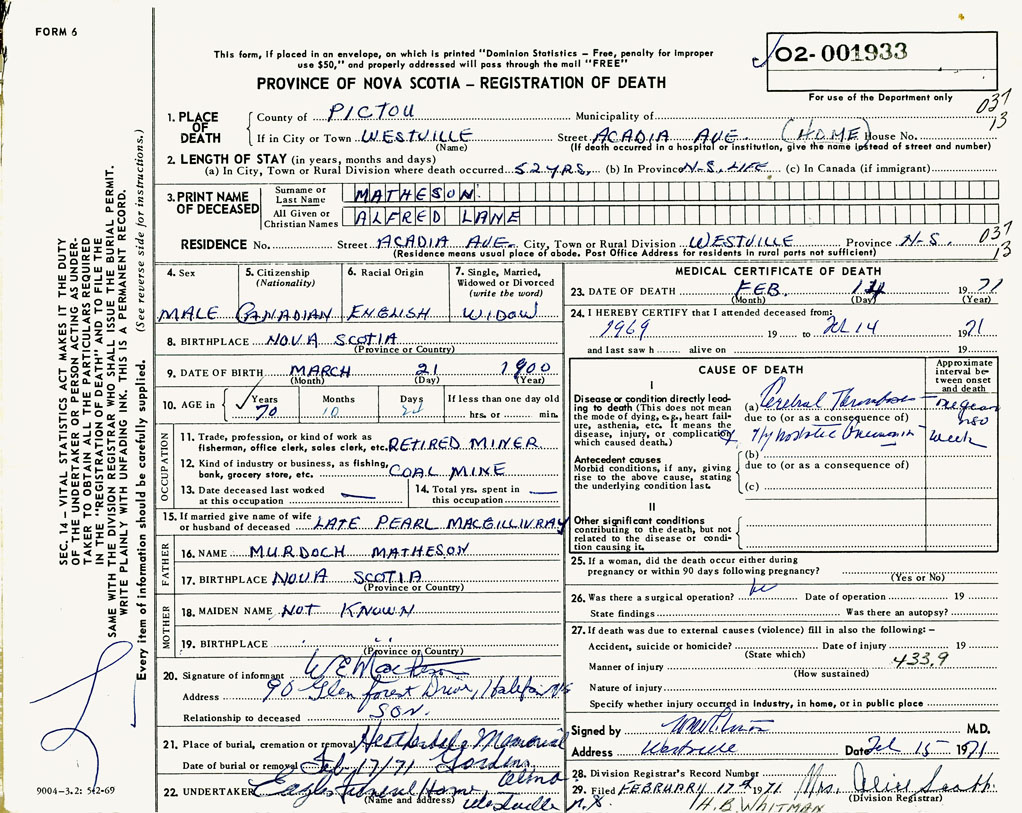 FORM 6
This form, if placed in an envelope, on which is printed "Dominion Statistics – Free, penalty for improper
use $50," and properly addressed will pass through the mail "FREE"
O2- 001933
PROVINCE OF NOVA SCOTIA – REGISTRATION OF DEATH
For use of the Department only
037
13
1. PLACE OF DEATH
County of PICTOU Municipality of
If in City or Town WESTVILLE Street ACADIA AVE. (HOME) House No.
(Name) (If death occurred in a hospital or institution, give the name instead of street and number)
2. LENGTH OF STAY (in years, months and days)
(a) In City, Town or Rural Division where death occurred 52 YRS. (b) In Province N-S. LIFE (c) In Canada (if immigrant)
3. PRINT NAME OF DECEASED
Surname or Last Name MATHESON
All Given or Christian Names ALFRED LANE
RESIDENCE No. Street ACADIA AVE. City, Town or Rural Division WESTVILLE Province N-S.
037
13
(Residence means usual place of abode. Post Office Address for residents in rural parts not sufficient)
4. Sex
MALE
5. Citizenship (Nationality)
CANADIAN
6. Racial Origin
ENGLISH
7. Single, Married, Widowed or Divorced (write the word)
WIDOW
8. BIRTHPLACE NOVA SCOTIA
(Province or Country)
9. DATE OF BIRTH MARCH 21 1900
(Month) (Day) (Year)
10. AGE in Years Months Days If less than one day
70 10 hrs. or min.
OCCUPATION
11. Trade, profession, or kind of work as
fisherman, office clerk, sales clerk, etc. RETIRED MINER
12. Kind of industry or business, as fishing,
bank, grocery store, etc. COAL MINE
13. Date deceased last worked
at this occupation
14. Total yrs. spent in
this occupation
15. If married give name of wife
or husband of deceased LATE PEARL MACGILLIVRAY
FATHER
16. NAME MURDOCH MATHESON
17. BIRTHPLACE NOVA SCOTIA
(Province or Country)
MOTHER
18. MAIDEN NAME NOT KNOWN
19. BIRTHPLACE
(Province or Country)
20. Signature of informant
Address 90 Glen Forest Drive, Halifax N.S
Relationship to deceased SON.
21. Place of burial, cremation or removal Memorial
Gardens
Date of burial or removal Feb 17/71
22. UNDERTAKER Eagles Funeral Home, Westville
(Name and address)
MEDICAL CERTIFICATE OF DEATH
23. DATE OF DEATH FEB. 14 1971
(Month) (Day) (Year)
24. I HEREBY CERTIFY that I attended deceased from:
1969 19 to Feb 14 1971
and last saw h alive on 19
CAUSE OF DEATH
Approximate interval between onset and death
I
Disease or condition directly leading to death (This does not
mean the mode of dying, e.g., heart failure, asthenia, etc. It means the
disease, injury, or complication which caused death.)
(a) Cerebral Thrombosis
due to (or as a consequence of)
Hypostatic Pneumonia week
Antecedent causes
Morbid conditions, if any, giving
rise to the above cause, stating
the underlying condition last.
(b)
due to (or as a consequence of)
(c)
II
Other significant conditions
contributing to the death, but not
related to the disease or condition causing it.
25. If a woman, did the death occur either during
pregnancy or within 90 days following pregnancy?
(Yes or No)
26. Was there a surgical operation? no Date of operation 19
State findings Was there an autopsy?
27. If death was due to external causes (violence) fill in also the following: –
Accident, suicide or homicide? Date of injury 19
(State which)
433.9
Manner of injury
(How sustained)
Nature of injury
Specify whether injury occurred in industry, in home, or in public place
Signed by M.D.
Address Westville Date Feb 15 1971
28. Division Registrar's Record Number
29. Filed FEBRUARY 17th 1971 Mrs. Alice
(Division Registrar)
H.B. WHITMAN
SEC. 14 – VITAL STATISTICS ACT MAKES IT THE DUTY
OF THE UNDERTAKER OR PERSON ACTING AS UNDER-
TAKER TO OBTAIN ALL THE PARTICULARS REQUIRED
IN THE "REGISTRATION OF DEATH" AND TO FILE THE
SAME WITH THE DIVISION REGISTRAR WHO SHALL ISSUE THE BURIAL PERMIT.
WRITE PLAINLY WITH UNFADING INK. THIS IS A PERMANENT RECORD.
Every item of information should be carefully supplied. (See reverse side for instructions.)
9004-3.2: 5-2-69